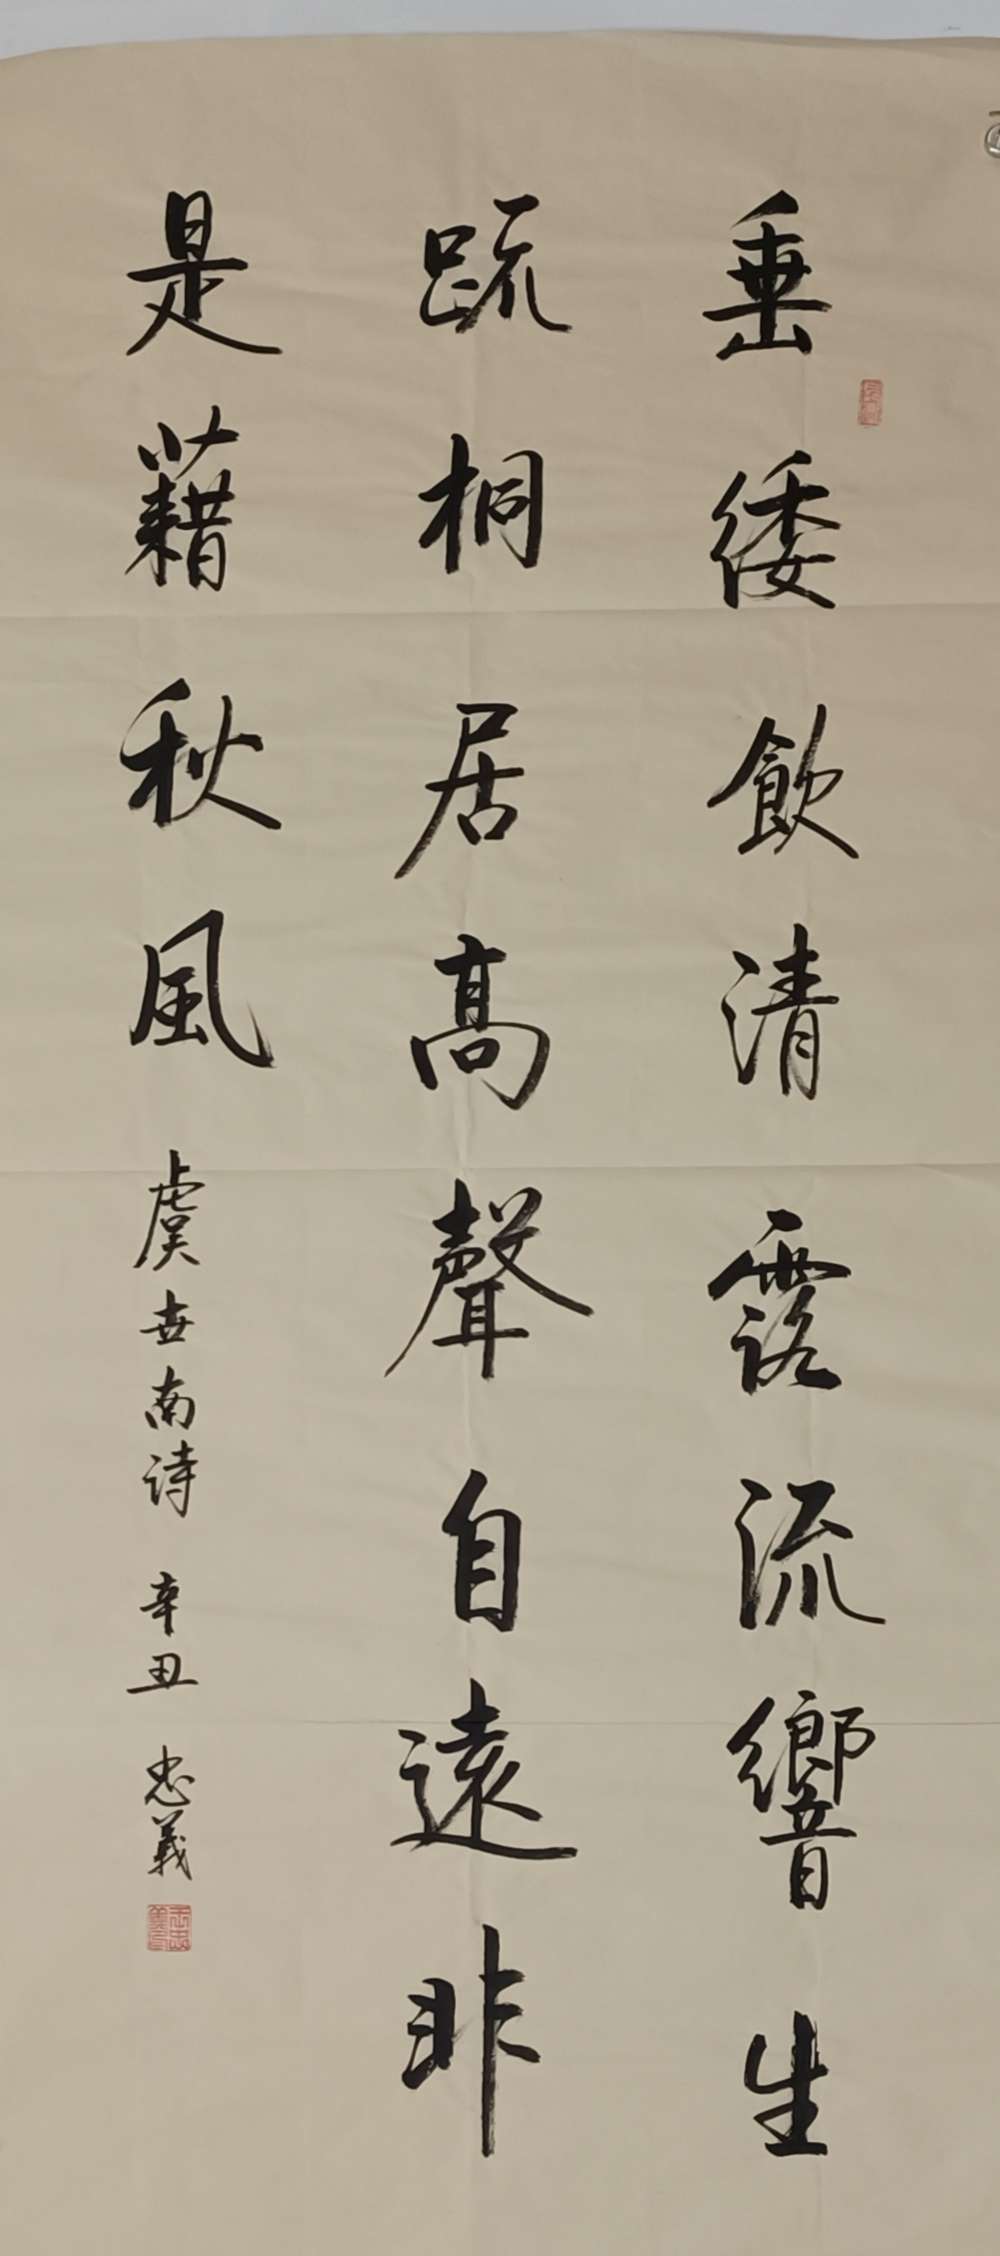 垂緌飲清露流響生
疏桐居高聲自遠非
是藉秋風
虞世南詩 辛丑 忠義